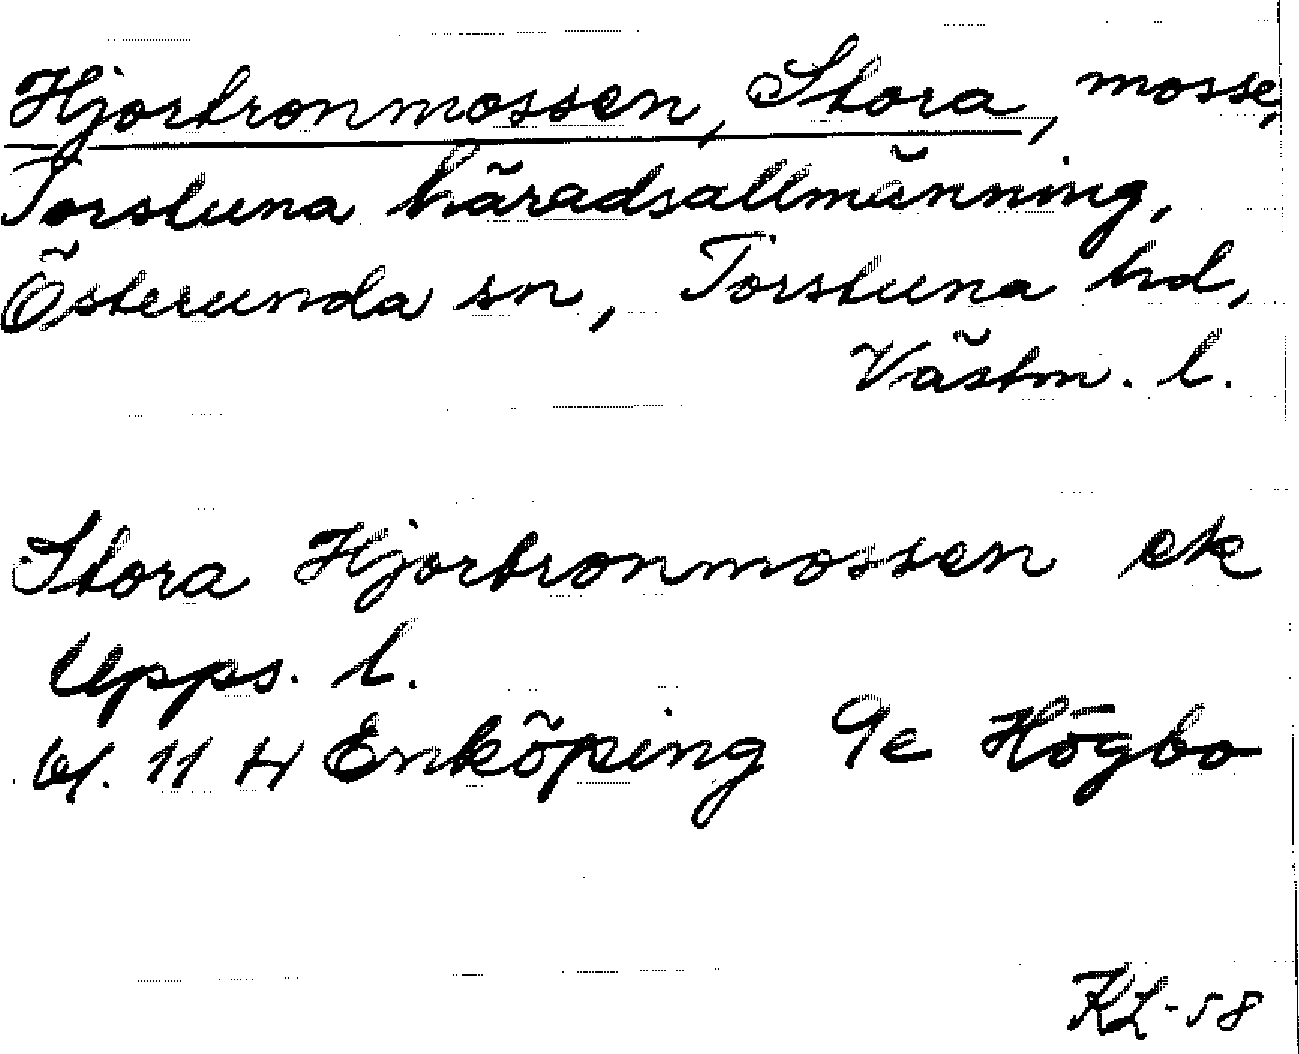 Hjortronmossen, Stora, mosse,
Torstuna häradsallmänning,
Österunda sn, Torstuna hd,
Västm. l.
Stora Hjortronmossen ek
Upps. l.
bl. 11 H Enköping 9e Högbo
KL-58